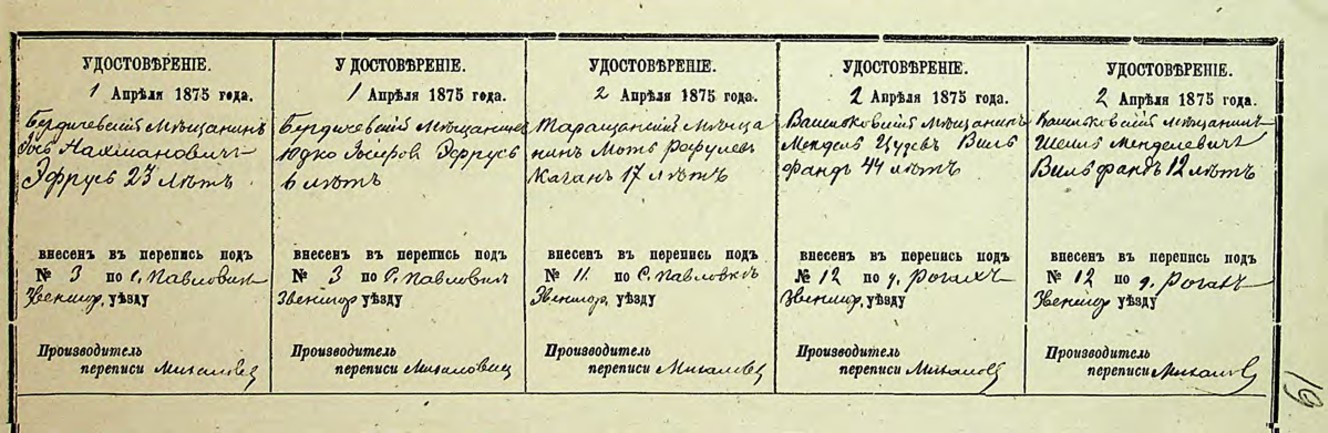 УДОСТОВѢРЕНІЕ.
1 Апрѣля 1875 года.
Бердичевскій Мѣщанинъ
Нахмановичъ
Эфрусъ 23 лѣтъ
внесенъ въ перепись подъ
№ 3 по с. Павловкѣ
Звенигор. уѣзду
Производитель
переписи
УДОСТОВѢРЕНІЕ.
1 Апрѣля 1875 года.
Бердичевскій Мѣщанинъ
Юдко Эфрусъ
6 лѣтъ
внесенъ въ перепись подъ
№ 3 по с. Павловкѣ
Звенигор. уѣзду
Производитель
переписи
УДОСТОВѢРЕНІЕ.
2 Апрѣля 1875 года.
Таращанскій мѣща
нинъ Мотъ Рафулевъ
Каганъ 17 лѣтъ
внесенъ въ перепись подъ
№ 11 по с. Павловкѣ
Звенигор. уѣзду
Производитель
переписи
УДОСТОВѢРЕНІЕ.
2 Апрѣля 1875 года.
Васильковскій Мѣщанинъ
Мендель Виль
фандъ 44 лѣтъ
внесенъ въ перепись подъ
№ 12 по
Звенигор. уѣзду
Производитель
переписи
УДОСТОВѢРЕНІЕ.
2 Апрѣля 1875 года.
Васильковскій мѣщанинъ
Менделевичъ
Вильфандъ 12 лѣтъ
внесенъ въ перепись подъ
№ 12 по
Звенигор уѣзду
Производитель
переписи
19